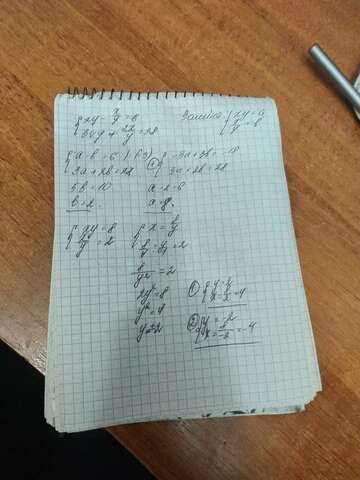 {xy - x/y = 6
{3xy + 2x/y = 28
Замена: {xy = a
{x/y = b
{a - b = 6 | (-3)
{3a + 2b = 28
+ {-3a + 3b = -18
3a + 2b = 28
5b = 10
b = 2
a - 2 = 6
a = 8
{xy = 8
{x/y = 2
{x = 8/y
8/y : y = 2
8/y² = 2
2y² = 8
y² = 4
y = ±2
1) {y = 2
{x = 8/2 = 4
2) {y = -2
{x = 8/-2 = -4